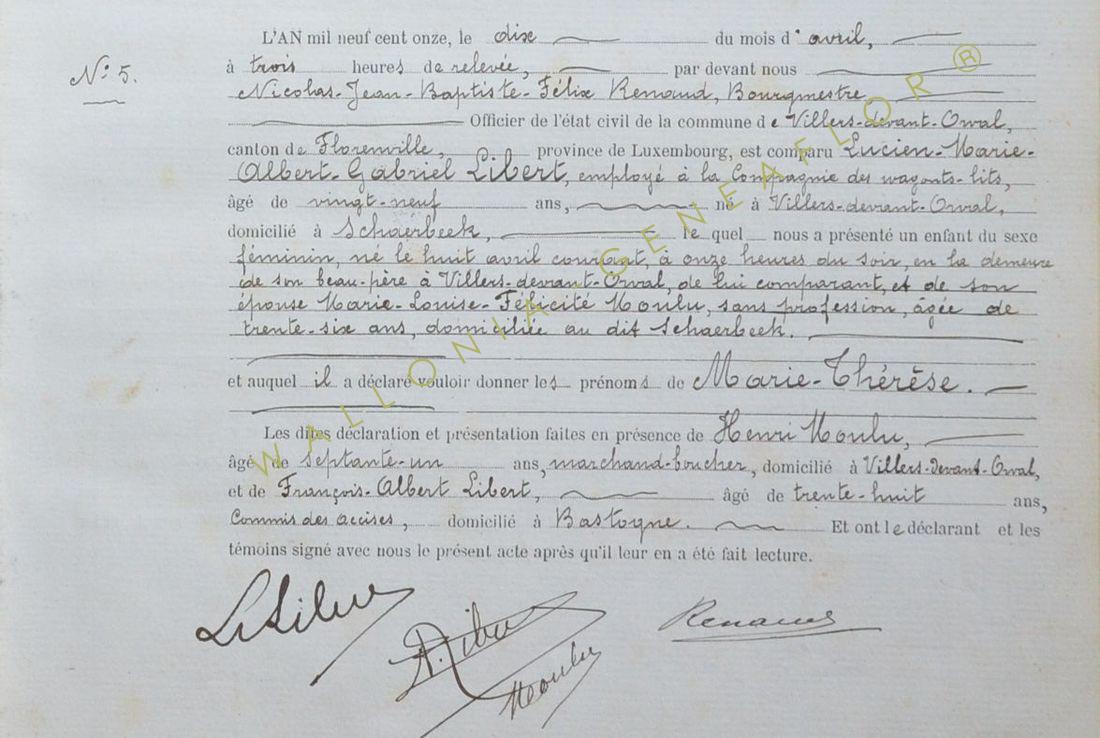 L'AN mil neuf cent onze, le dix du mois d'avril,
N° 5.
à trois heures de relevée, par devant nous
Nicolas-Jean-Baptiste-Félix Renaud, Bourgmestre
Officier de l'état civil de la commune de Villers-devant-Orval,
canton de Florenville, province de Luxembourg, est comparu Lucien-Marie-
Albert-Gabriel Libert, employé à la Compagnie des wagonts-lits,
âgé de vingt-neuf ans, né à Villers-devant-Orval,
domicilié à Schaerbeek, le quel nous a présenté un enfant du sexe
féminin, né le huit avril courant, à onze heures du soir, en la demeure
de son beau-père à Villers-devant-Orval, de lui comparant, et de son
épouse Marie-Louise-Félicité Moulu, sans profession, âgée de
trente-six ans, domiciliée au dit Schaerbeek.
et auquel il a déclaré vouloir donner les prénoms de Marie-Thérèse.
Les dites déclaration et présentation faites en présence de Henri Moulu,
âgé de septante-un ans, marchand-boucher, domicilié à Villers-devant-Orval,
et de François-Albert Libert, âgé de trente-huit ans,
Commis des accises, domicilié à Bastogne. Et ont le déclarant et les
témoins signé avec nous le présent acte après qu'il leur en a été fait lecture.
Renaud
Moulu
WALLONIA GENEAFLOR ®